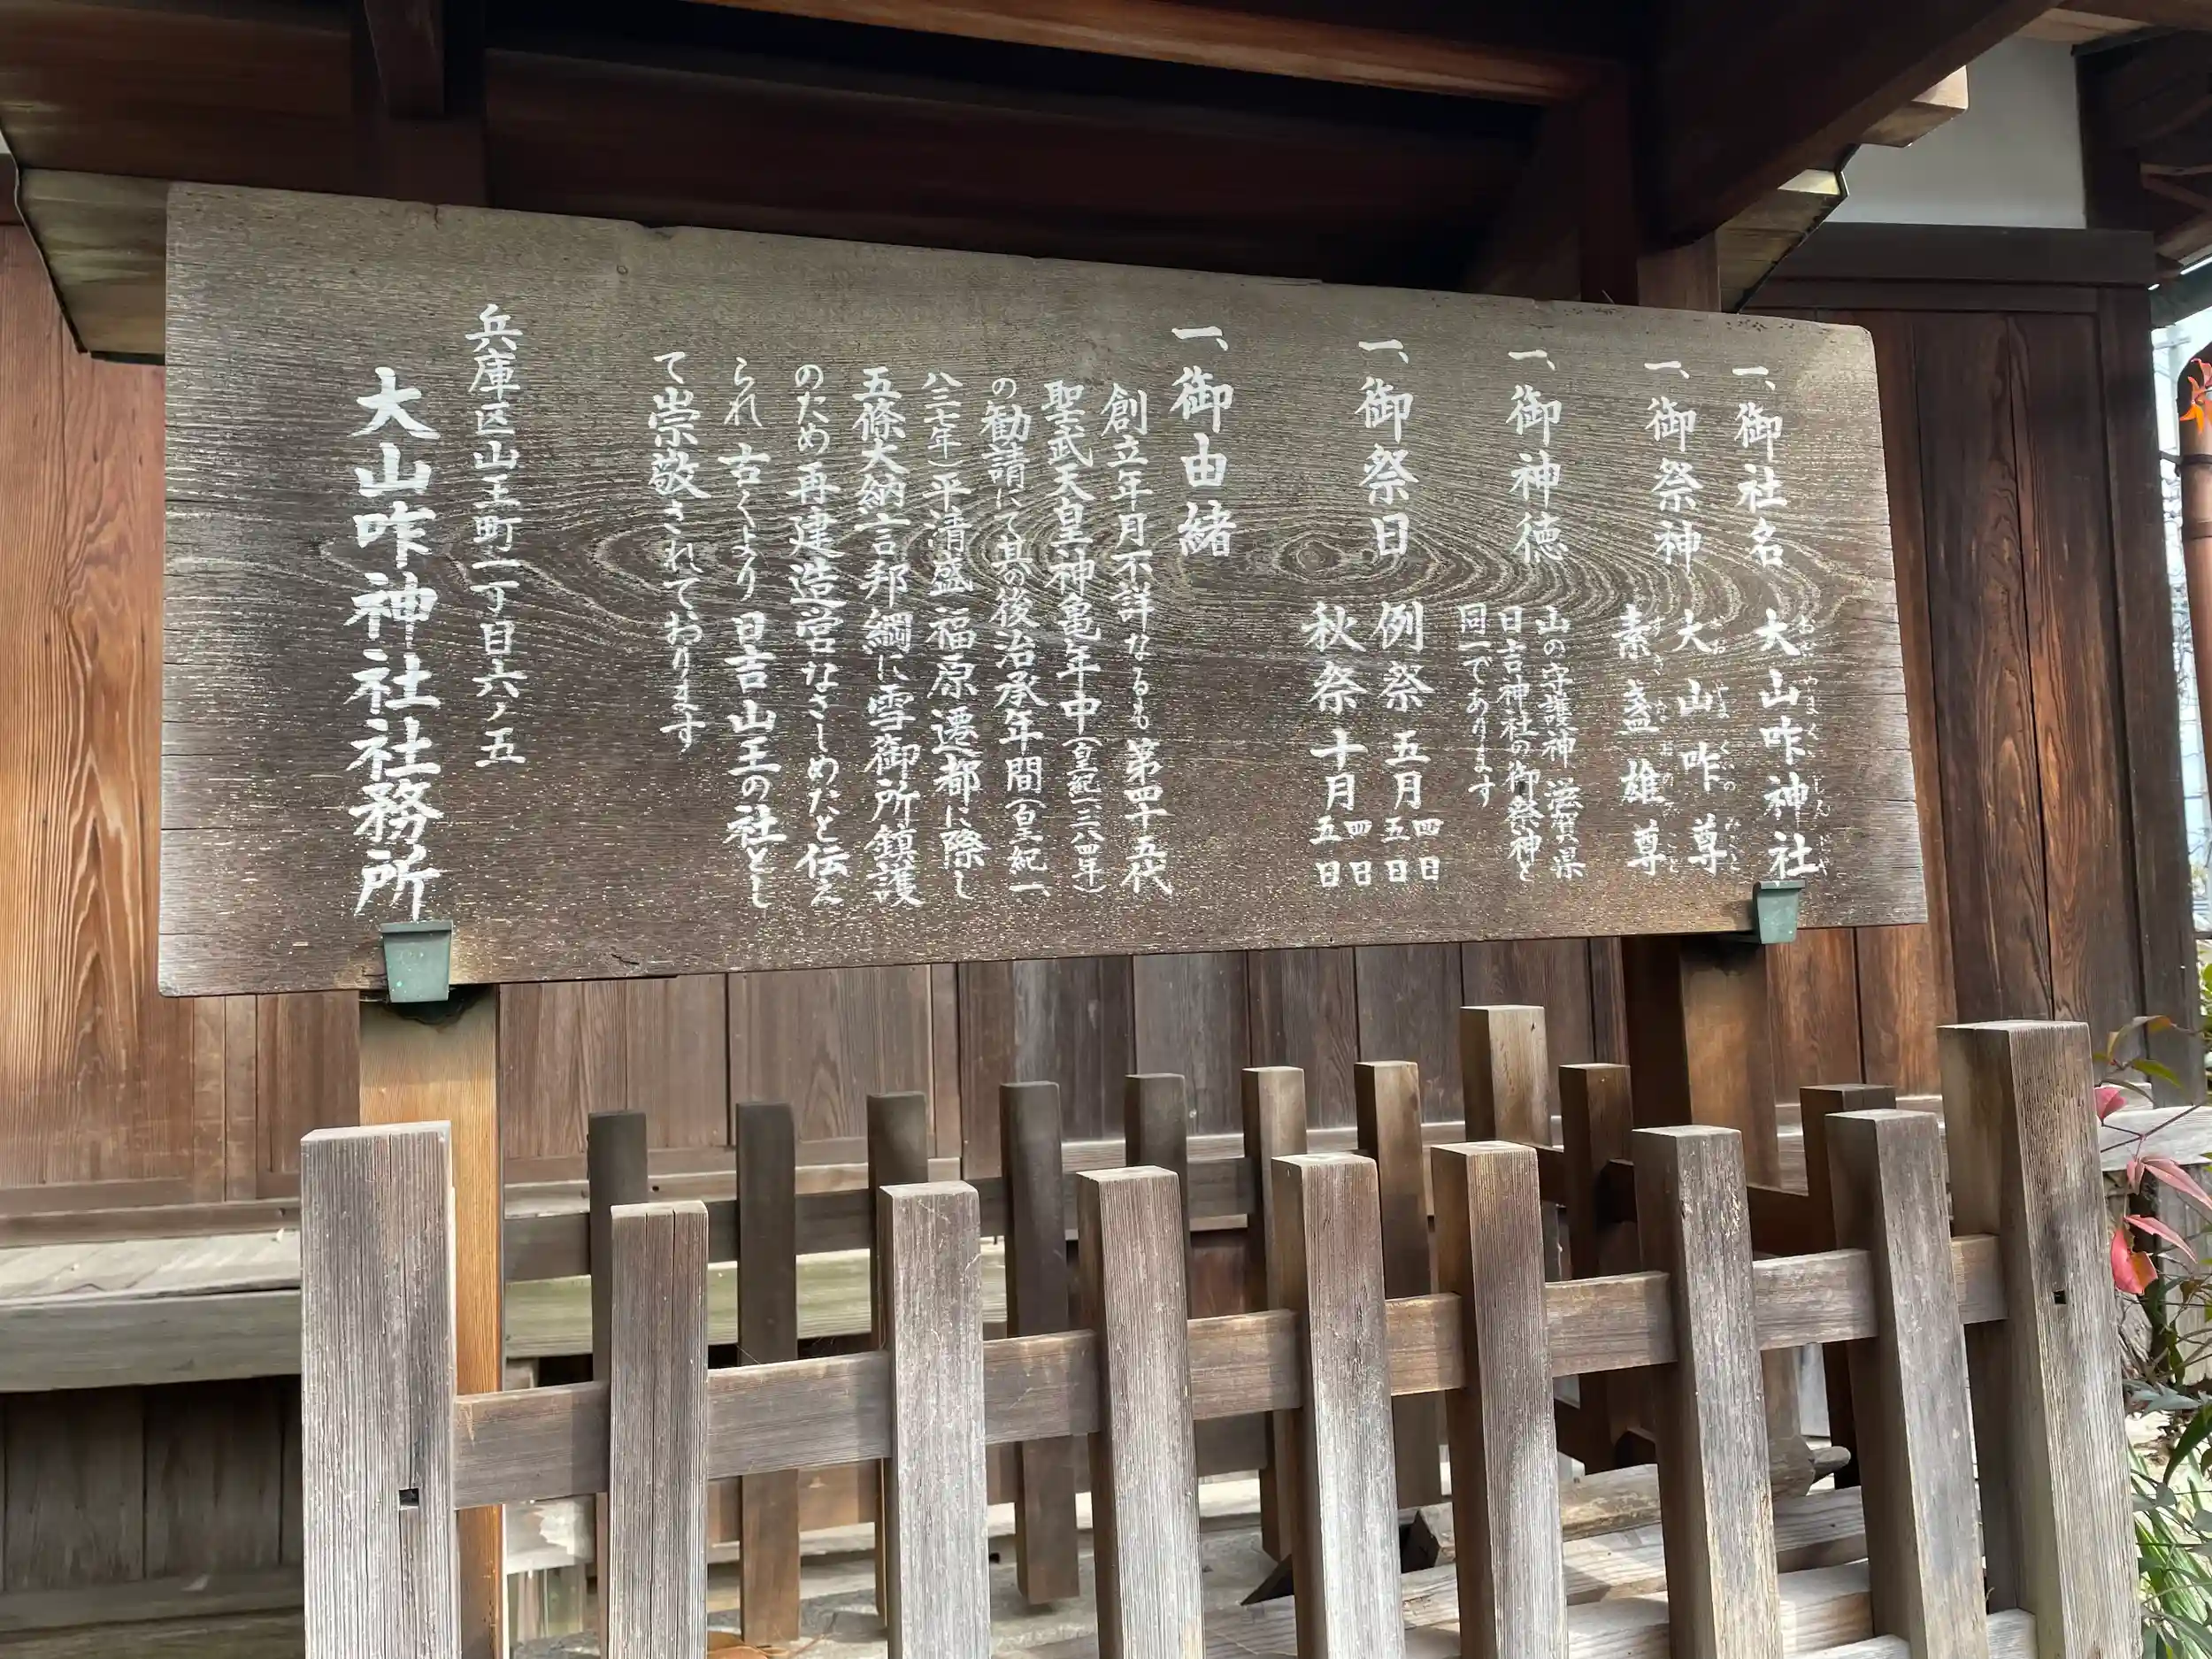 一、御社名 大山咋神社
おおやまくいじんじゃ
一、御祭神 大山咋尊
おおやまくいのみこと
素盞雄尊
すさのおのみこと
一、御神徳 山の守護神 滋賀県
日吉神社の御祭神と
同一であります
一、御祭日 例祭 五月四日五日
秋祭 十月四日五日
一、御由緒
創立年月不詳なるも 第四十五代
聖武天皇神亀年中(皇紀一三八四年)
の勧請にて其の後治承年間(皇紀一、
八三七年)平清盛 福原遷都に際し
五條大納言邦綱に雪御所鎮護
のため再建造営なさしめたと伝え
られ 古くより 日吉山王の社とし
て崇敬されております
兵庫区山王町二丁目六ノ五
大山咋神社社務所